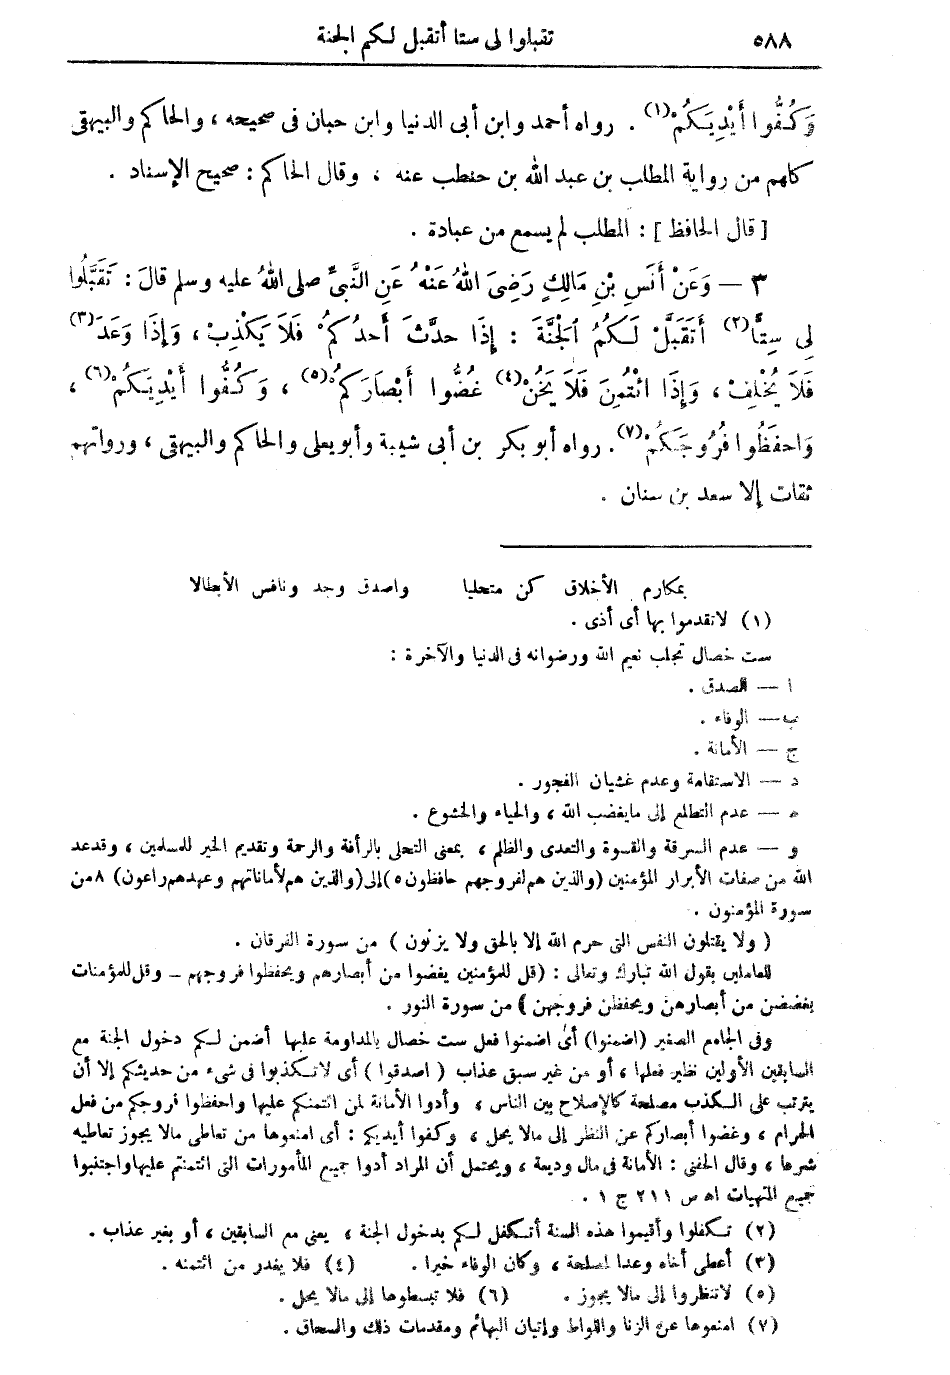 ٥٨٨ تقبلوا لى ستا أتقبل لكم الجنة
وَكُفُّوا أَيْدِيَكُمْ(١) . رواه أحمد وابن أبى الدنيا وابن حبان فى صحيحه ، والحاكم والبيهقى
كلهم من رواية المطلب بن عبد الله بن حنطب عنه ، وقال الحاكم : صحيح الإسناد .
[ قال الحافظ ] : المطلب لم يسمع من عبادة .
٣ — وَعَنْ أَنَسِ بْنِ مَالِكٍ رَضِىَ اللهُ عَنْهُ عَنِ النَّبِىِّ صلى اللهُ عليه وسلم قالَ : تَقَبَّلُوا
لِى سِتًّا(٢) أَتَقَبَّلْ لَكُمُ الْجَنَّةَ : إِذَا حدَّثَ أَحدُكمُ فَلَا يَكْذِبْ ، وَإِذَا وَعَدَ(٣)
فَلَا يُخْلِفْ ، وَإِذَا ائْتُمِنَ فَلَا يَخُنْ(٤) غُضُّوا أَبْصَارَكمُ(٥) ، وَكُفُّوا أَيْدِيَكُمْ(٦) ،
وَاحفَظُوا فُرُوجَكُمْ(٧) . رواه أبو بكر بن أبى شيبة وأبو يعلى والحاكم والبيهقى ، ورواتهم
ثقات إلا سعد بن سنان .
بمكارم الأخلاق كن متحليا واصدق وجد ونافس الأبطالا
(١) لاتقدموا بها أى أذى .
ست خصال تجلب نعيم الله ورضوانه فى الدنيا والآخرة :
ا — الصدق .
ب — الوفاء .
ج — الأمانة .
د — الاستقامة وعدم غشيان الفجور .
ه — عدم التطلع إلى مايغضب الله ، والحياء والخشوع .
و — عدم السرقة والقسوة والتعدى والظلم ، بمعنى التحلى بالرأفة والرحمة وتقديم الخير للمسلمين ، وقدعد
الله من صفات الأبرار المؤمنين (والذين هم لفروجهم حافظون ٥) إلى (والذين هم لأماناتهم وعهدهم راعون) ٨ من
سورة المؤمنون .
( ولا يقتلون النفس التى حرم الله إلا بالحق ولا يزنون ) من سورة الفرقان .
للعاملين بقول الله تبارك وتعالى : (قل للمؤمنين يغضوا من أبصارهم ويحفظوا فروجهم – وقل للمؤمنات
يغضضن من أبصارهن ويحفظن فروجهن ) من سورة النور .
وفى الجامع الصغير (اضمنوا) أى اضمنوا فعل ست خصال بالمداومة عليها أضمن لكم دخول الجنة مع
السابقين الأولين نظير فعلها ، أو من غير سبق عذاب ( اصدقوا ) أى لاتكذبوا فى شىء من حديثكم إلا أن
يترتب على الكذب مصلحة كالإصلاح بين الناس ، وأدوا الأمانة لمن ائتمنكم عليها واحفظوا فروجكم من فعل
الحرام ، وغضوا أبصاركم عن النظر إلى مالا يحل ، وكفوا أيديكم : أى امنعوها من تعاطى مالا يجوز تعاطيه
شرعا ، وقال الحفنى : الأمانة فى مال وديعة ، ويحتمل أن المراد أدوا جميع المأمورات التى ائتمنتم عليها واجتنبوا
جميع المنهيات اه ص ٢١١ ج ١ .
(٢) تكفلوا وأقيموا هذه الستة أتكفل لكم بدخول الجنة ، يعنى مع السابقين ، أو بغير عذاب .
(٣) أعطى أخاه وعدا لمصلحة ، وكان الوفاء خيرا . (٤) فلا يغدر من ائتمنه .
(٥) لاتنظروا إلى مالا يجوز . (٦) فلا تبسطوها إلى مالا يحل .
(٧) امنعوها عن الزنا واللواط وإتيان البهائم ومقدمات ذلك والسحاق .